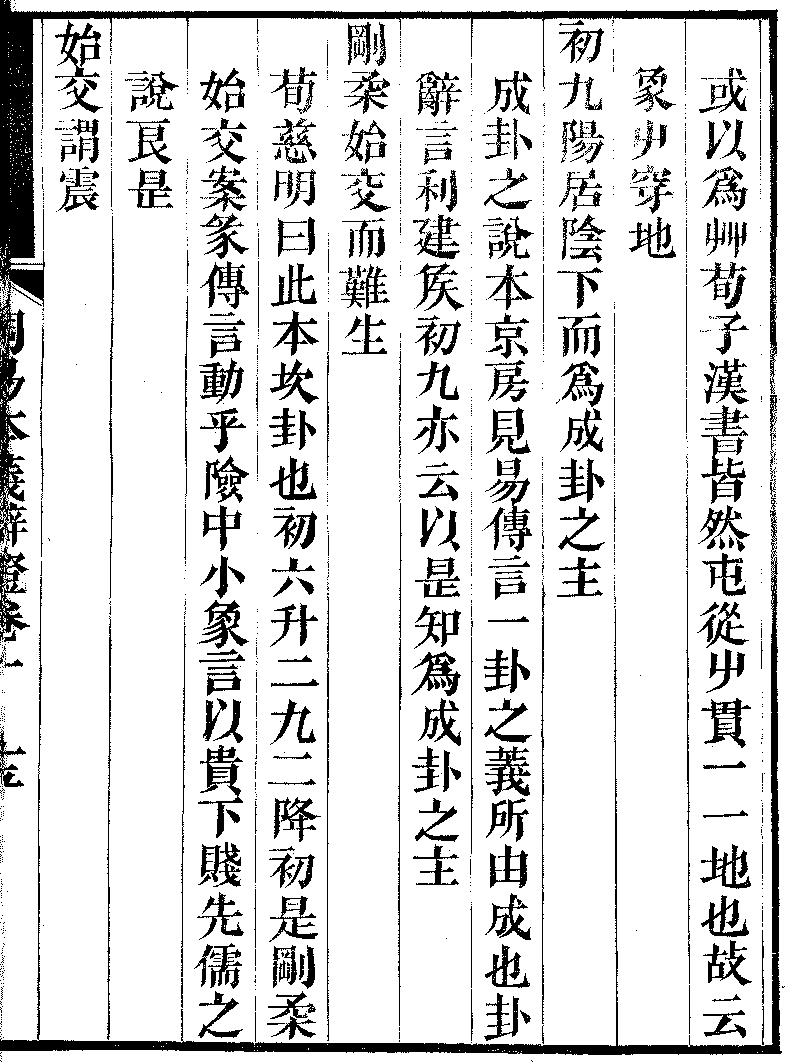 或以爲艸荀子漢書皆然屯從屮貫一一地也故云
象屮穿地
初九陽居陰下而爲成卦之主
成卦之說本京房見易傳言一卦之義所由成也卦
辭言利建矦初九亦云以是知爲成卦之主
剛柔始交而難生
荀慈明曰此本坎卦也初六升二九二降初是剛柔
始交案彖傳言動乎險中小象言以貴下賤先儒之
說良是
始交謂震
周易本義辨證卷一